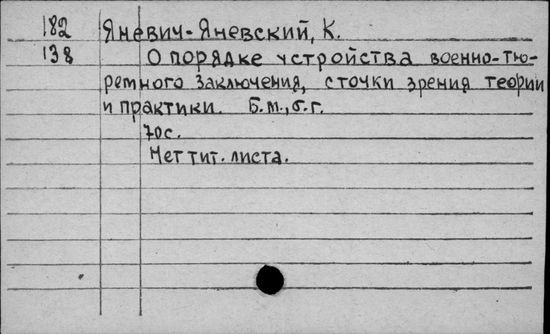 182 Яневич-Яневский, К.
138 О порядке устройства военно-тю-
ретного заключения, с точки зрения теории
и практики. Б.м., б.г.
70с.
Нет тит. листа.